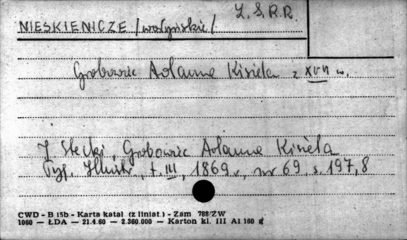 Z.S.R.R.
NIESKIENICZE /wołyńskie/
Grobowiec Adama Kisiela z XVII w.
J. Stecki, Grobowiec Adama Kisiela
Tyg. Illustr., t. III, 1869 r., nr 69 s. 197,8
CWD - B 15b - Karta katal (z liniat.) - Zam 788/ZW
1060 — ŁDA — 21.4.60 — 2.360.000 — Karton kl. III A1 160 g